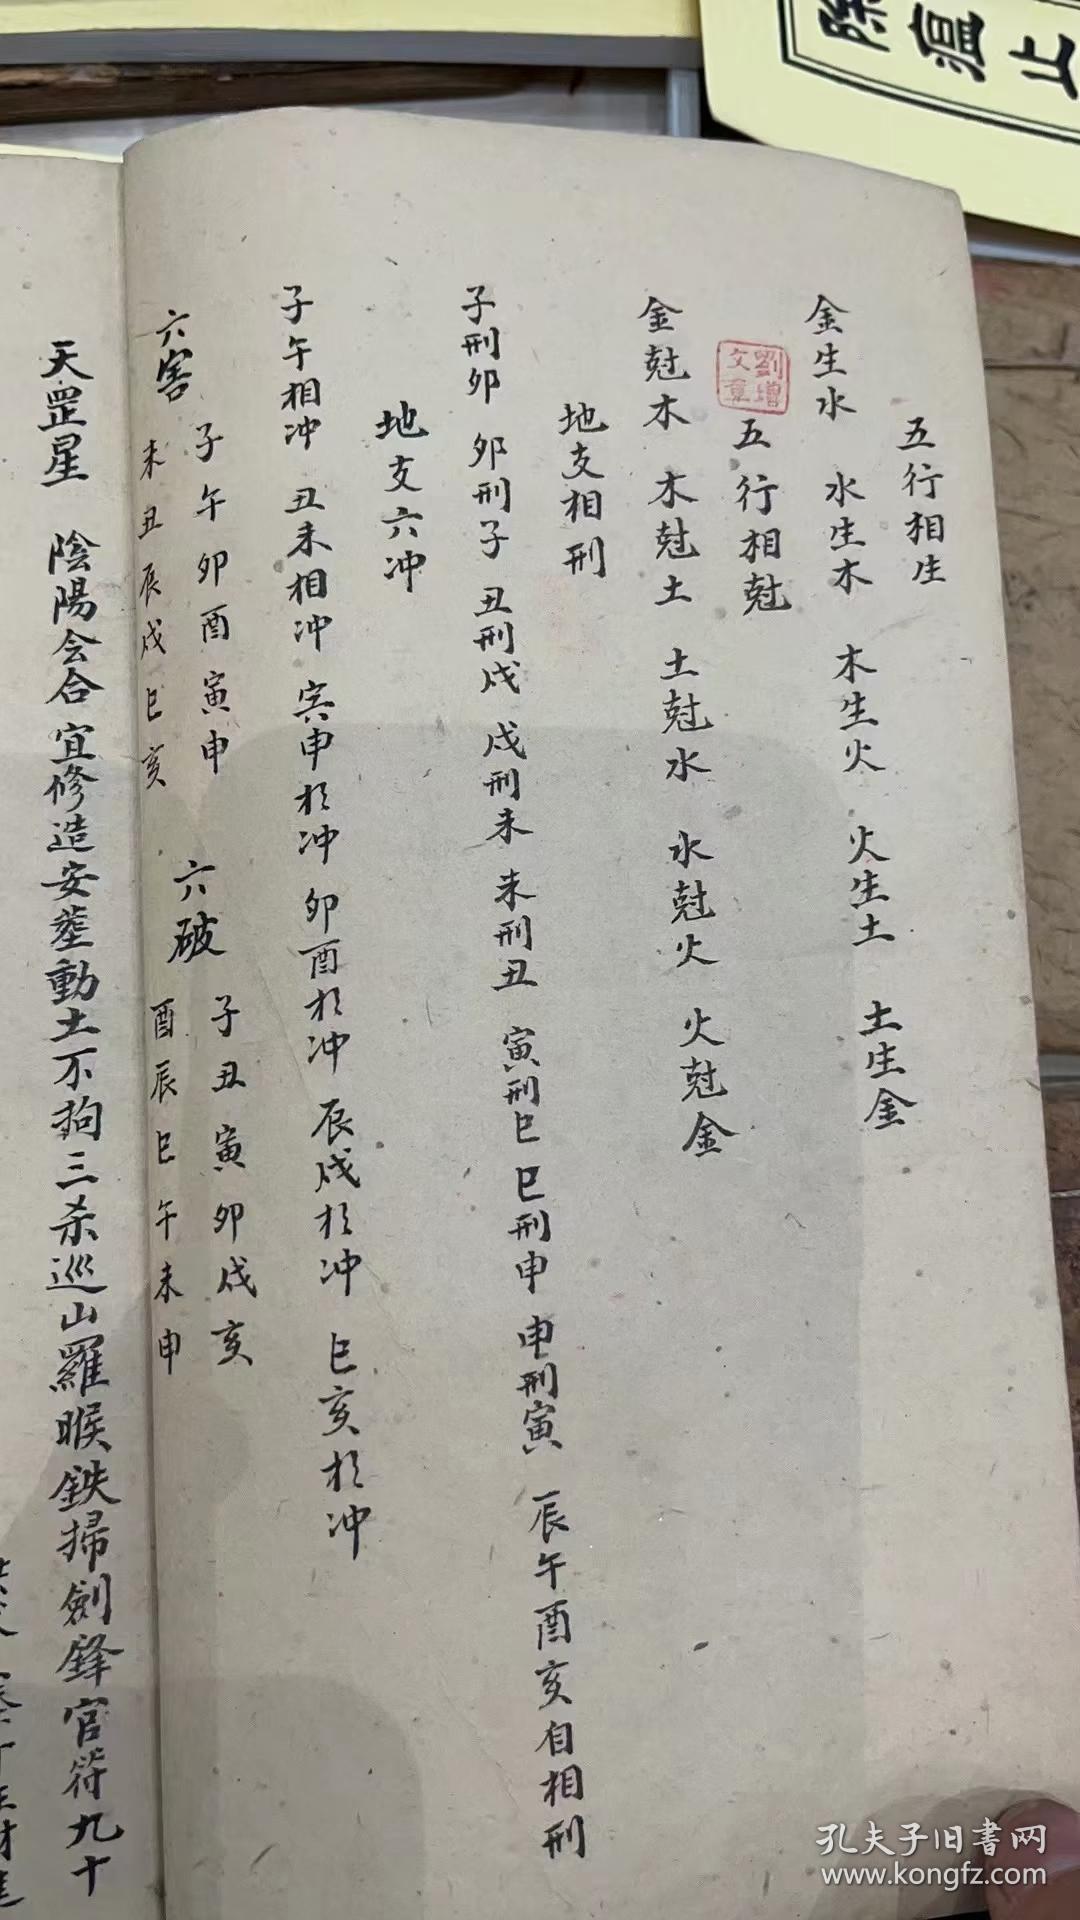 除瘟止
五行相生
金生水 水生木 木生火 火生土 土生金
五行相尅
劉增
文章
金尅木 木尅土 土尅水 水尅火 火尅金
地支相刑
子刑卯 卯刑子 丑刑戌 戌刑未 未刑丑 寅刑巳 巳刑申 申刑寅 辰午酉亥自相刑
地支六冲
子午相冲 丑未相冲 寅申相冲 卯酉相冲 辰戌相冲 巳亥相冲
六害
子午卯酉寅申
未丑辰戌巳亥
六破
子丑寅卯戌亥
酉辰巳午未申
天罡星 陰陽会合宜修造安塟動土不拘三杀巡山羅睺鉄掃劍鋒官符九十
孔夫子旧書网
www.kongfz.com